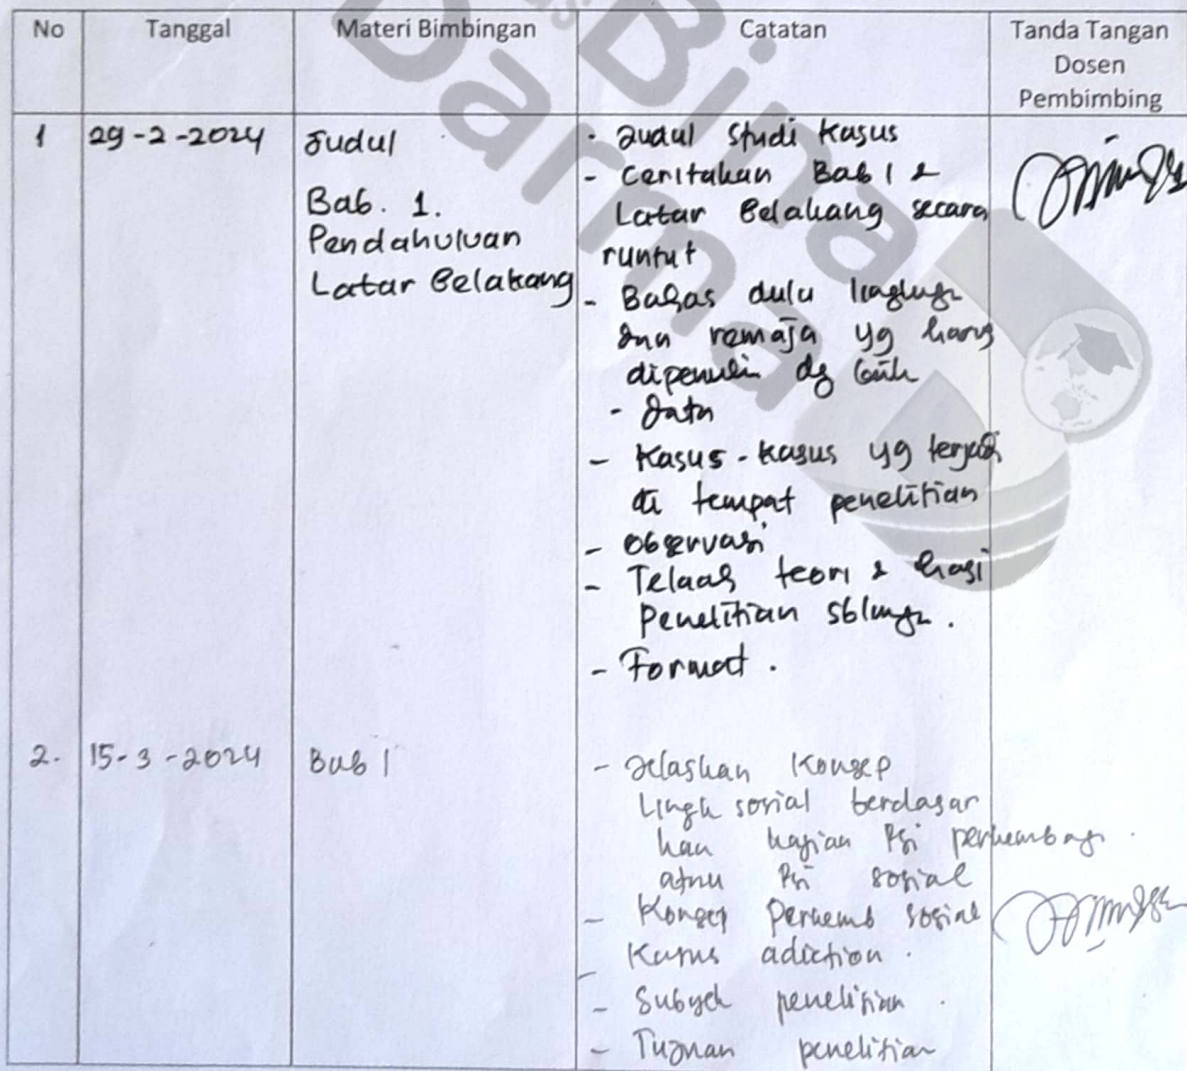 No Tanggal Materi Bimbingan Catatan Tanda Tangan
Dosen
Pembimbing
Bina
Darma
1 29-2-2024 Judul - Judul Studi Kasus
- Ceritakan Bab 1 &
Bab. 1. Latar Belakang secara
Pendahuluan runtut
Latar Belakang - Bahas dulu
remaja yg
dg
- Data
- Kasus-kasus yg terjadi
di tempat penelitian
- Observasi
- Telaah teori & hasil
Penelitian sblmnya.
- Format.
2. 15-3-2024 Bab 1 - Jelaskan Konsep
Lingk sosial berdasar
kan kajian Psi perkembag.
atau Psi sosial
- Konsep Perkemb sosial
- Kasus adiction.
- Subyek penelitian.
- Tujuan penelitian